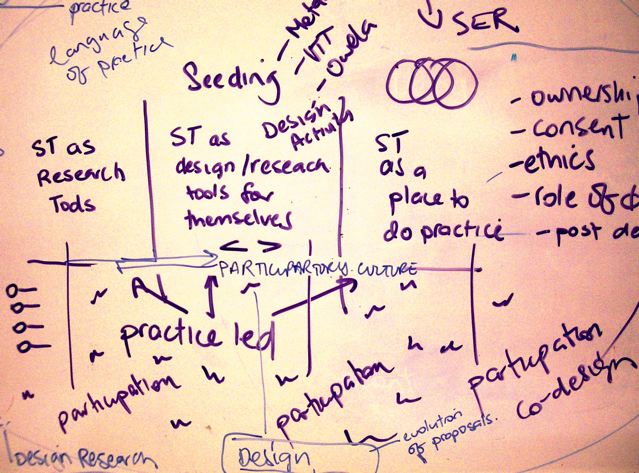 practice
language
of practice
Seeding
- Meta
- VTT
- Owela
USER
Design
ST as
Research
Tools
ST as
design/reseach
tools for
themselves
ST
as a
place to
do practice
- ownership
- consent
- ethics
- role of
- post de
< >
PARTICIPARTORY CULTURE
practice led
participation
participation
participation
co-design
evolution
of proposals.
Design Research
Design